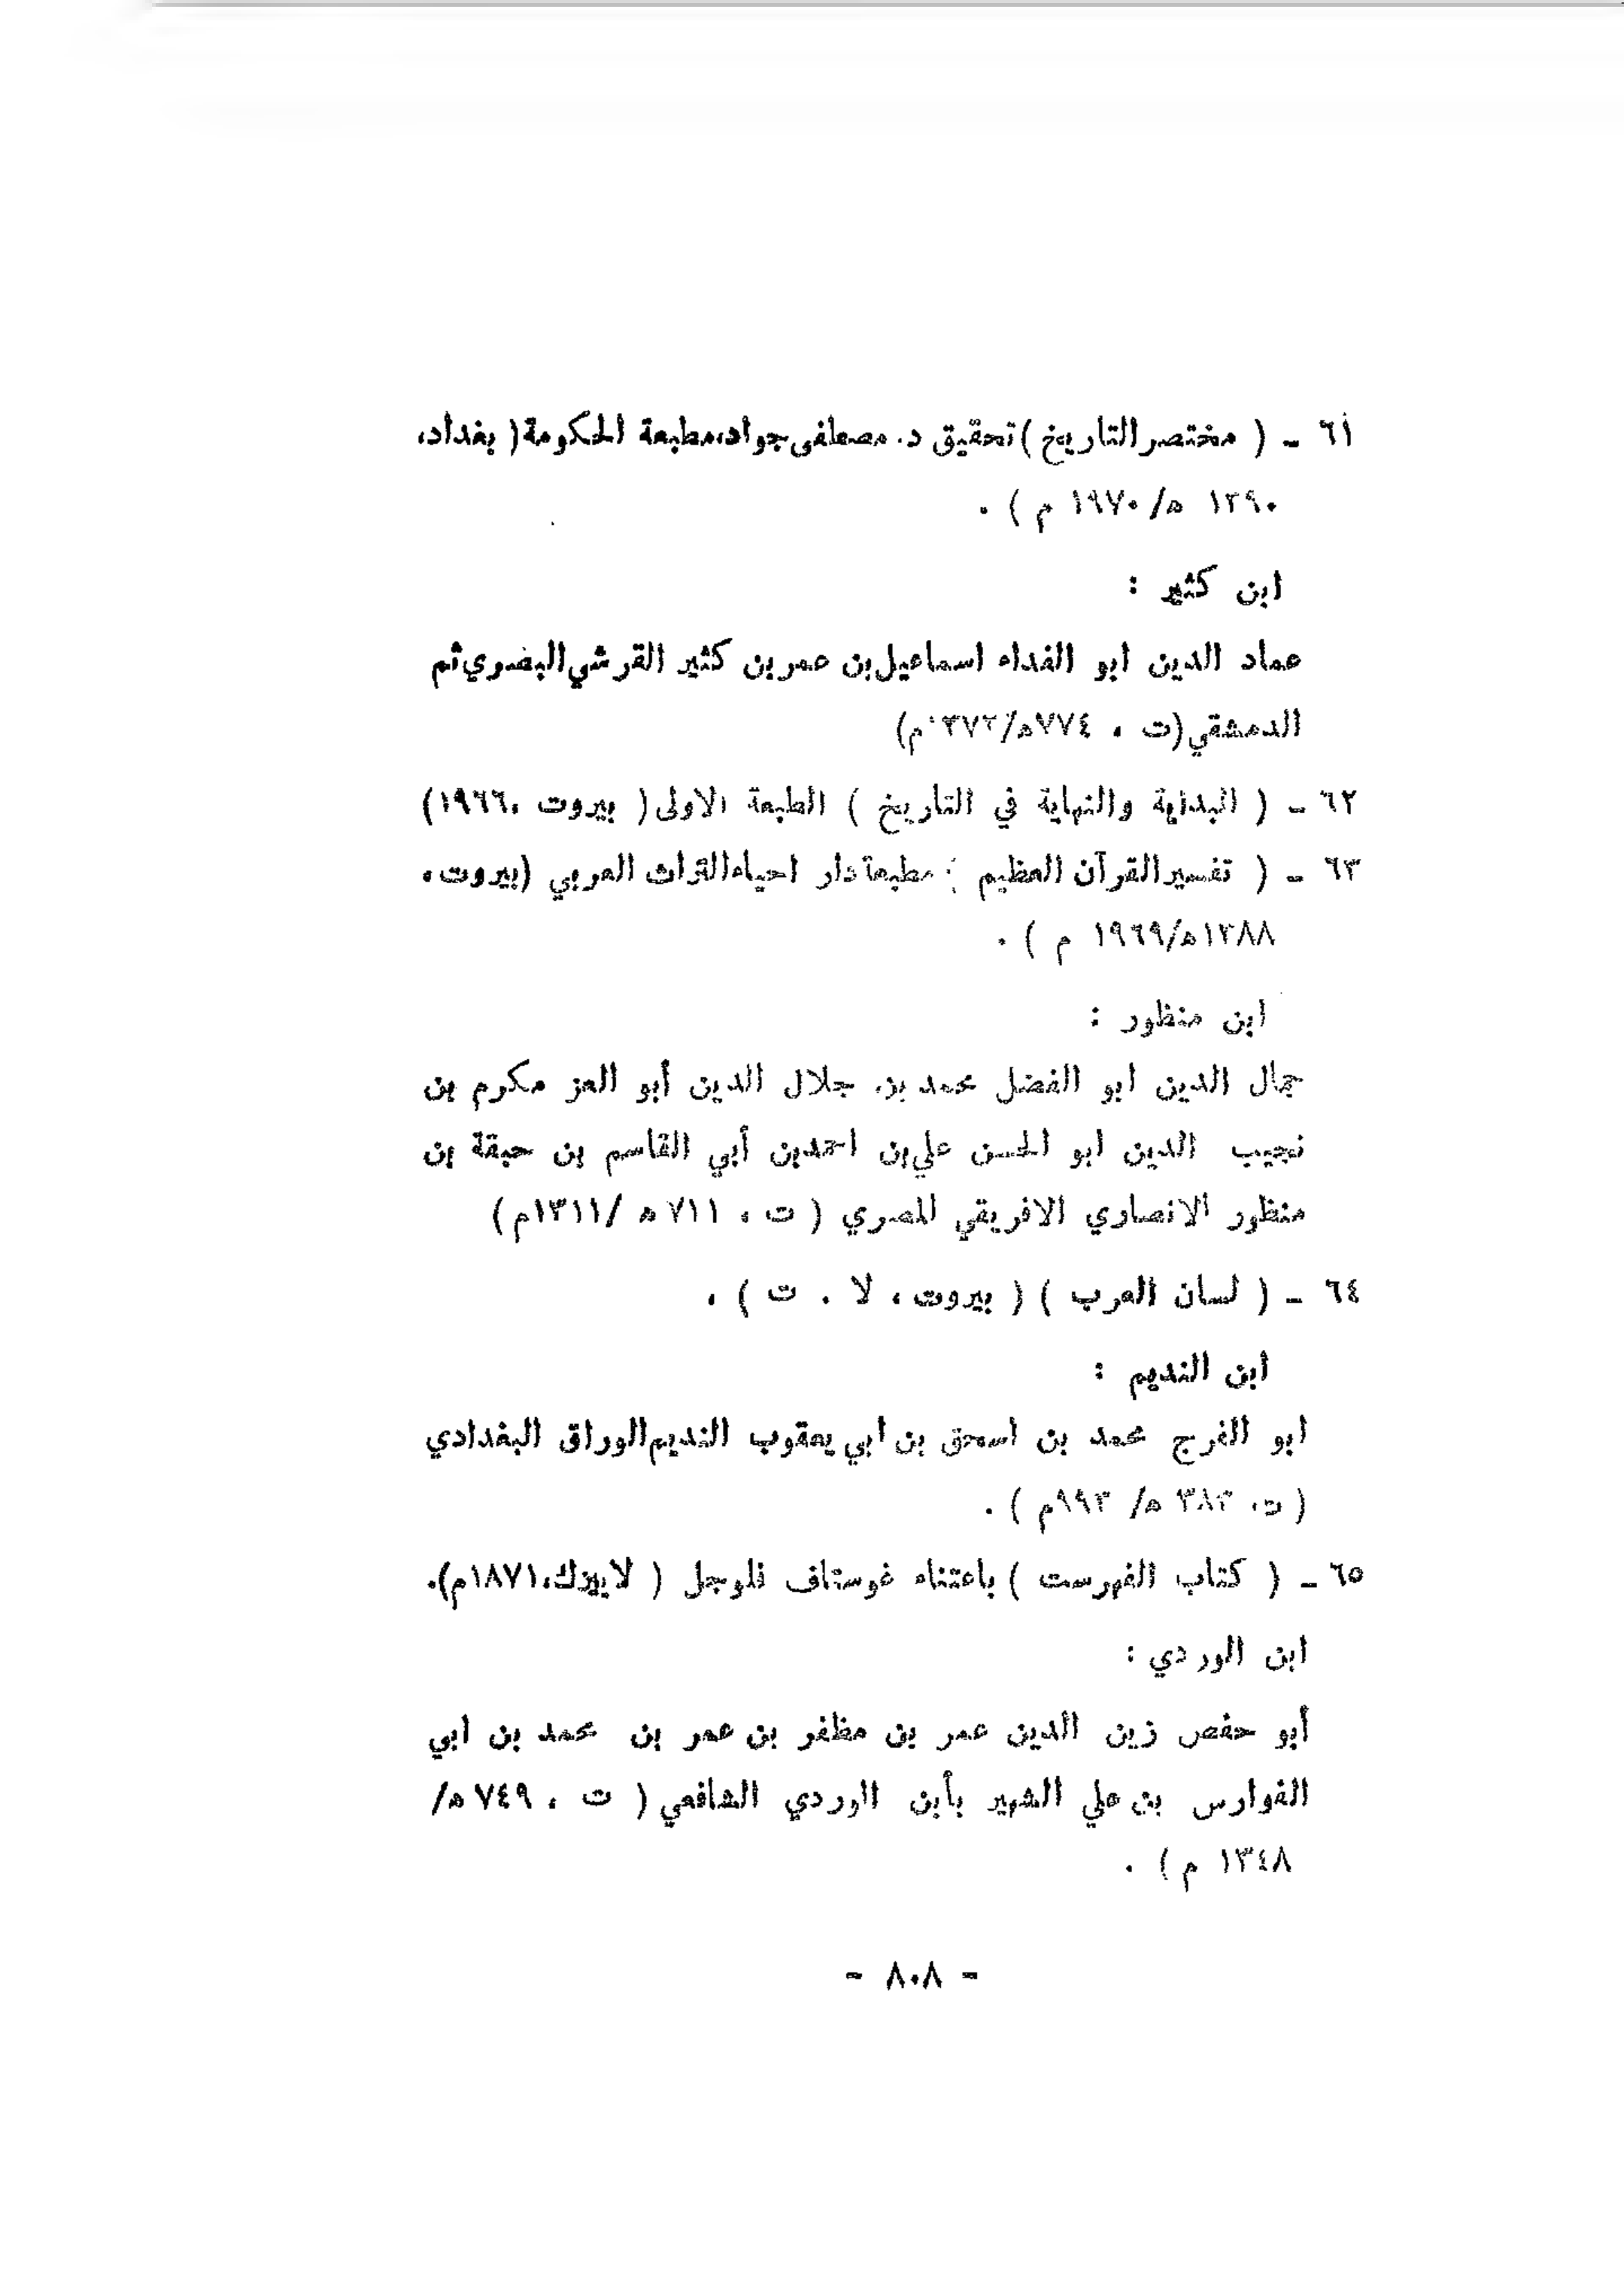 ٦١ ـ ( مختصر التاريخ ) تحقيق د. مصطفى جواد، مطبعة الحكومة ( بغداد،
١٣٩٠ ه/ ١٩٧٠ م ) .
ابن كثير :
عماد الدين ابو الفداء اسماعيل بن عمر بن كثير القرشي البصري ثم
الدمشقي (ت ، ٧٧٤ه/١٣٧٢م)
٦٢ ـ ( البداية والنهاية في التاريخ ) الطبعة الاولى ( بيروت ،١٩٦٦)
٦٣ ـ ( تفسير القرآن العظيم ) مطبعة دار احياء التراث العربي (بيروت ،
١٣٨٨ه/١٩٦٩ م ) .
ابن منظور :
جمال الدين ابو الفضل محمد بن جلال الدين أبو العز مكرم بن
نجيب الدين ابو الحسن علي بن احمد بن أبي القاسم بن حبقة بن
منظور الانصاري الافريقي المصري ( ت ، ٧١١ ه /١٣١١م)
٦٤ ـ ( لسان العرب ) ( بيروت ، لا . ت ) .
ابن النديم :
ابو الفرج محمد بن اسحق بن ابي يعقوب النديم الوراق البغدادي
( ت، ٣٨٣ ه/ ٩٩٣م ) .
٦٥ ـ ( كتاب الفهرست ) باعتناء غوستاف فلوجل ( لايبزك،١٨٧١م).
ابن الوردي :
أبو حفص زين الدين عمر بن مظفر بن عمر بن محمد بن ابي
الفوارس بن علي الشهير بأبن الوردي الشافعي ( ت ، ٧٤٩ ه/
١٣٤٨ م ) .
- ٨٠٨ -